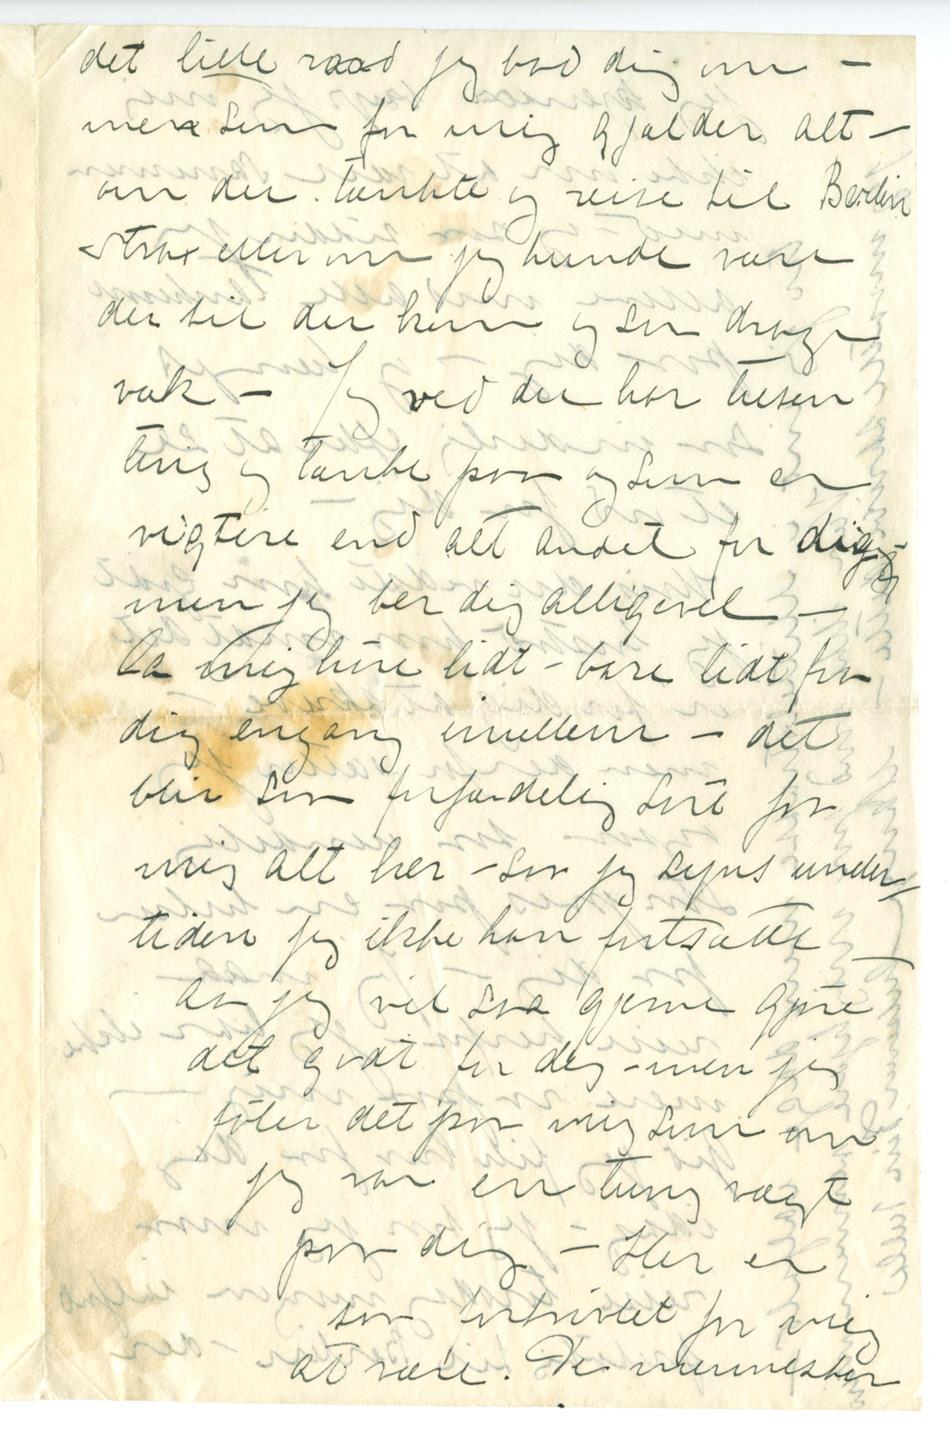 det lille raad jeg bad dig om –
men som for mig gjælder alt –
om du tænkte og reise til Berlin
strax eller om jeg kunde være
der til du kom og saa drage
væk – Jeg ved du har tusen
ting og tænke paa og som er
vigtere end alt andet for dig –
men jeg ber dig alligevel –
La mig høre lidt – bare lidt fra
dig engang imellem – det
blir saa forfærdelig sort for
mig alt her – saa jeg synes under
tiden jeg ikke kan fortsætte –
aa jeg vil saa gjerne gjøre
det godt for dig – men jeg
føler det paa mig som om
jeg var en tung vægt
paa dig – Her er
saa fortvilet for mig
at være. De mennesker